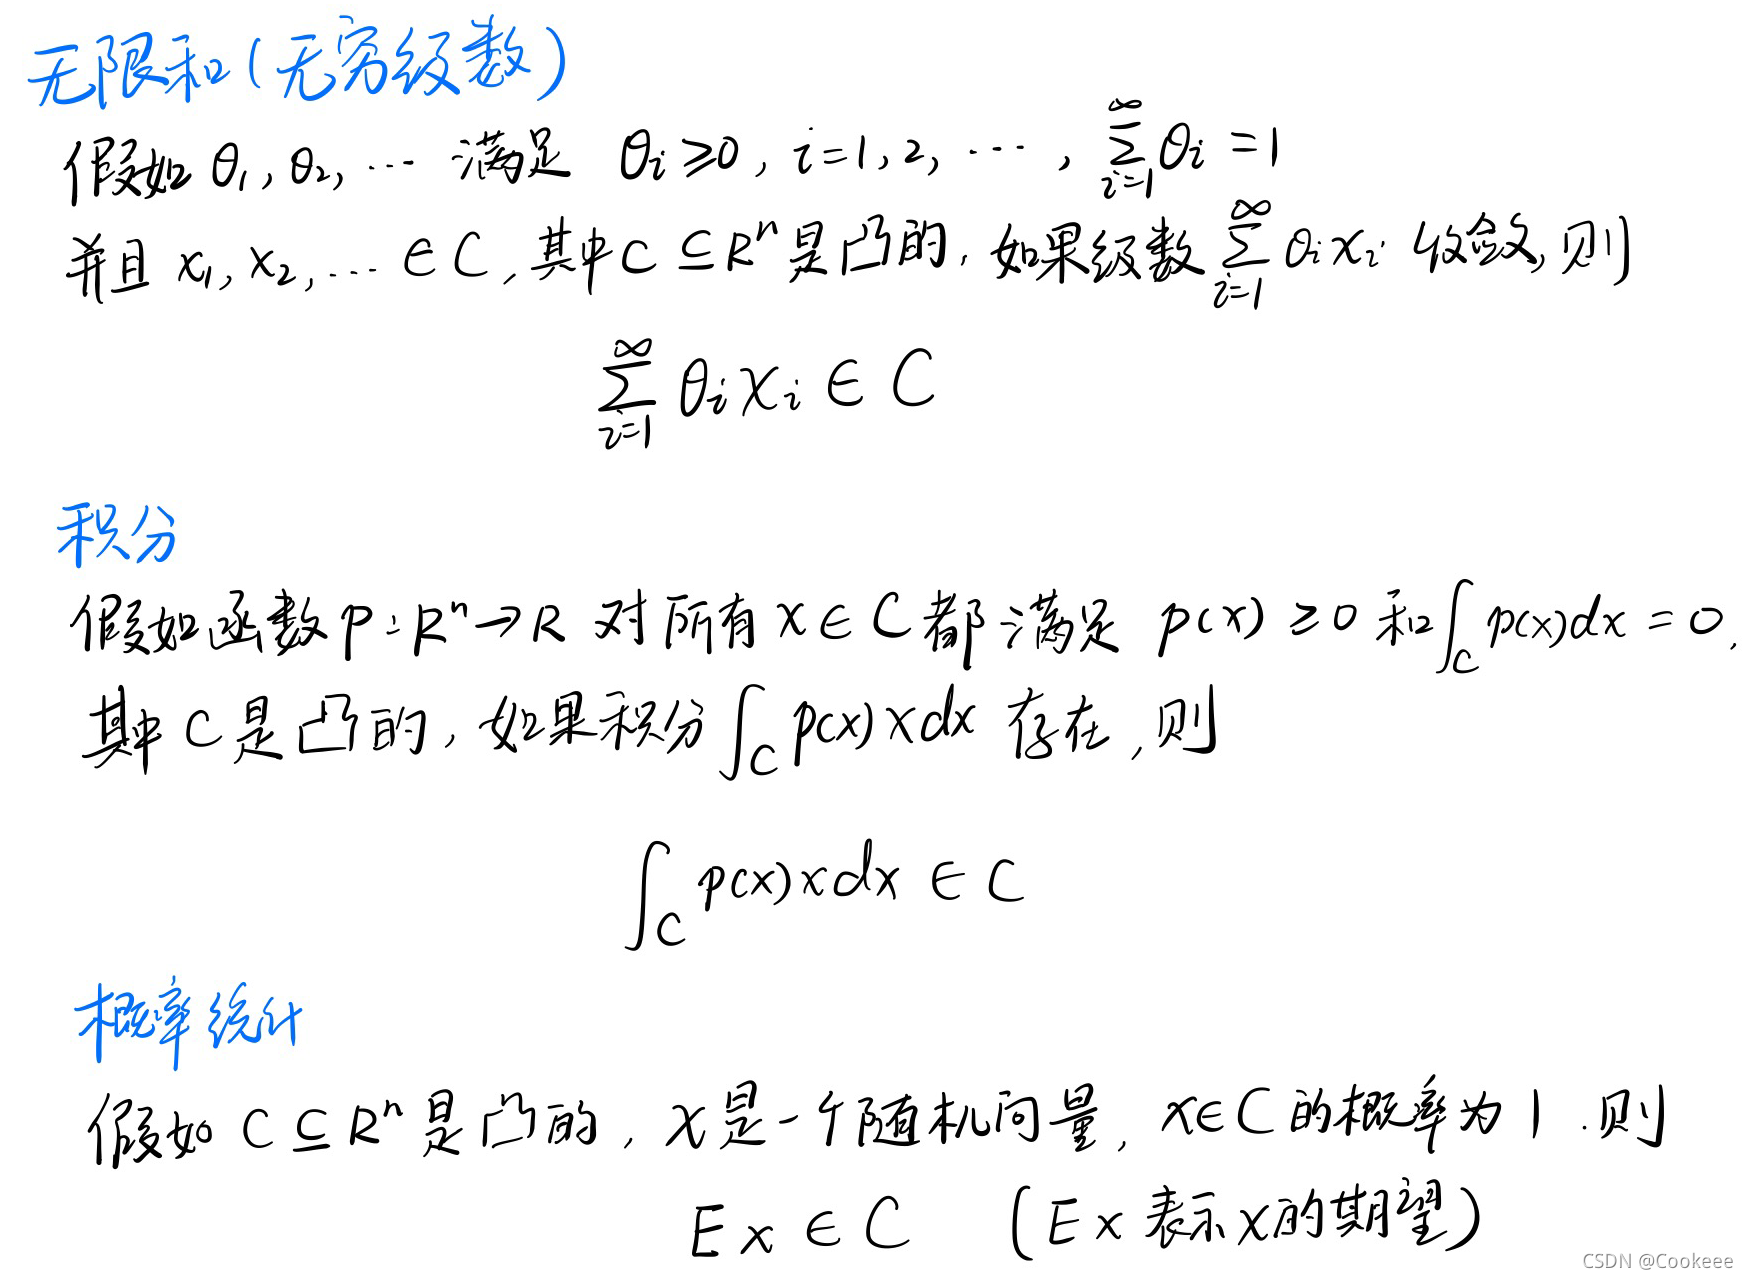 无限和(无穷级数)
假如 θ₁, θ₂, ⋯ 满足 θᵢ ≥ 0, i=1, 2, ⋯, ∑_{i=1}^{∞} θᵢ = 1
并且 x₁, x₂, … ∈ C, 其中 C ⊆ Rⁿ 是凸的, 如果级数 ∑_{i=1}^{∞} θᵢxᵢ 收敛, 则
∑_{i=1}^{∞} θᵢxᵢ ∈ C
积分
假如函数 p: Rⁿ → R 对所有 x ∈ C 都满足 p(x) ≥ 0 和 ∫_C p(x)dx = 0,
其中 C 是凸的, 如果积分 ∫_C p(x)xdx 存在, 则
∫_C p(x)xdx ∈ C
概率统计
假如 C ⊆ Rⁿ 是凸的, x 是一个随机向量, x∈C 的概率为 1. 则
Ex ∈ C (Ex 表示 x 的期望)
CSDN @Cookeee